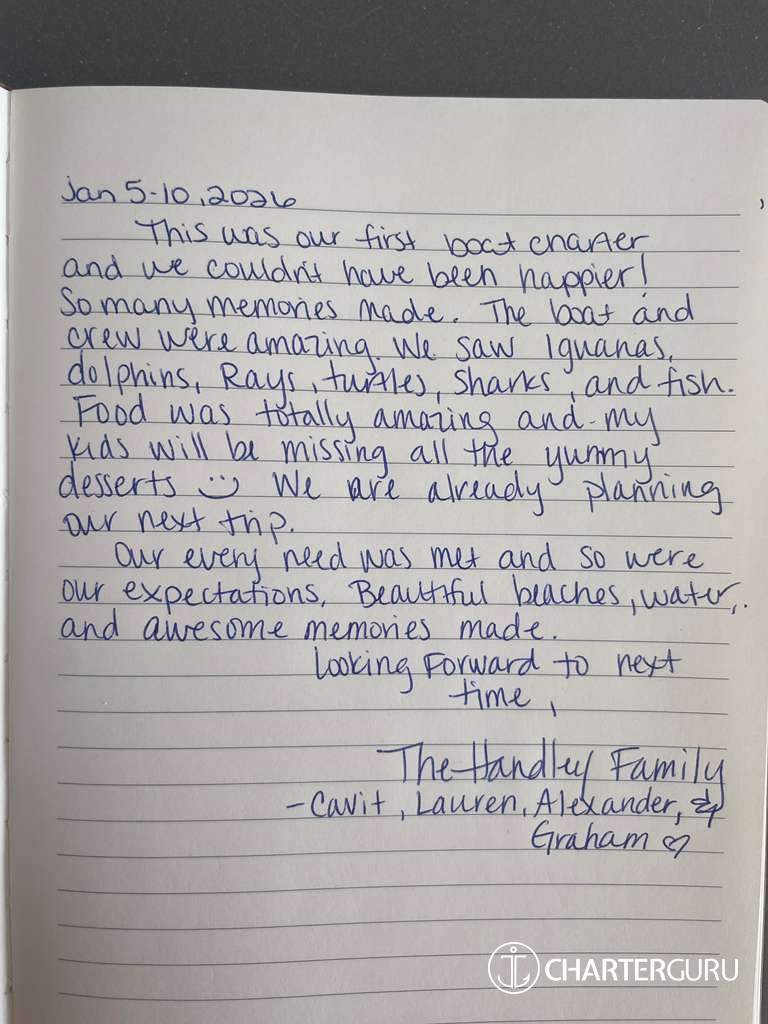 Jan 5-10, 2026
This was our first boat charter
and we couldn't have been happier!
So many memories made. The boat and
crew were amazing. We saw Iguanas,
dolphins, Rays, turtles, Sharks, and fish.
Food was totally amazing and my
kids will be missing all the yummy
desserts :) We are already planning
our next trip.
Our every need was met and so were
our expectations. Beautiful beaches, water,
and awesome memories made.
Looking Forward to next
time,
The Handley Family
- Cavit, Lauren, Alexander, &
Graham ♡
CHARTERGURU